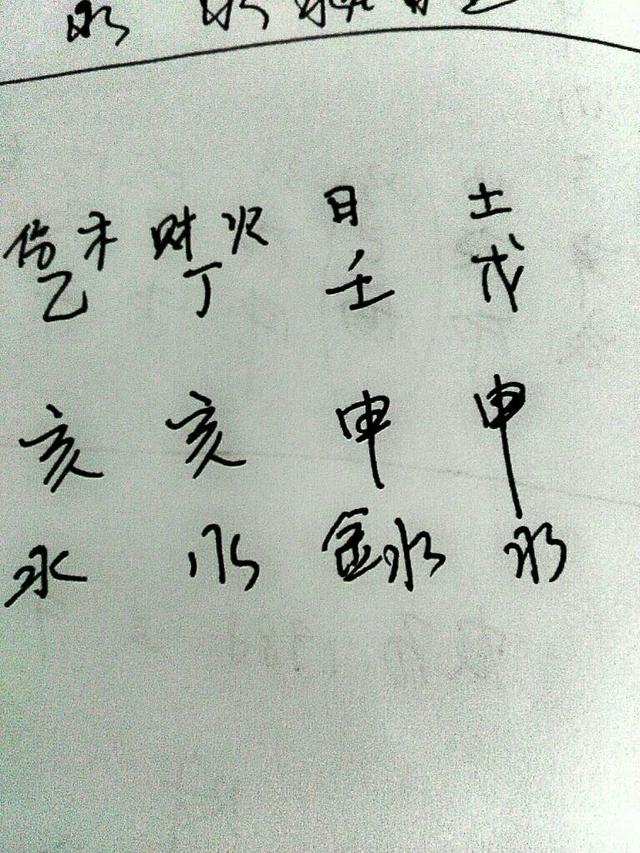 水 水
伤木 财火 日 土
乙 丁 壬 戊
亥 亥 申 申
水 水 金水 水